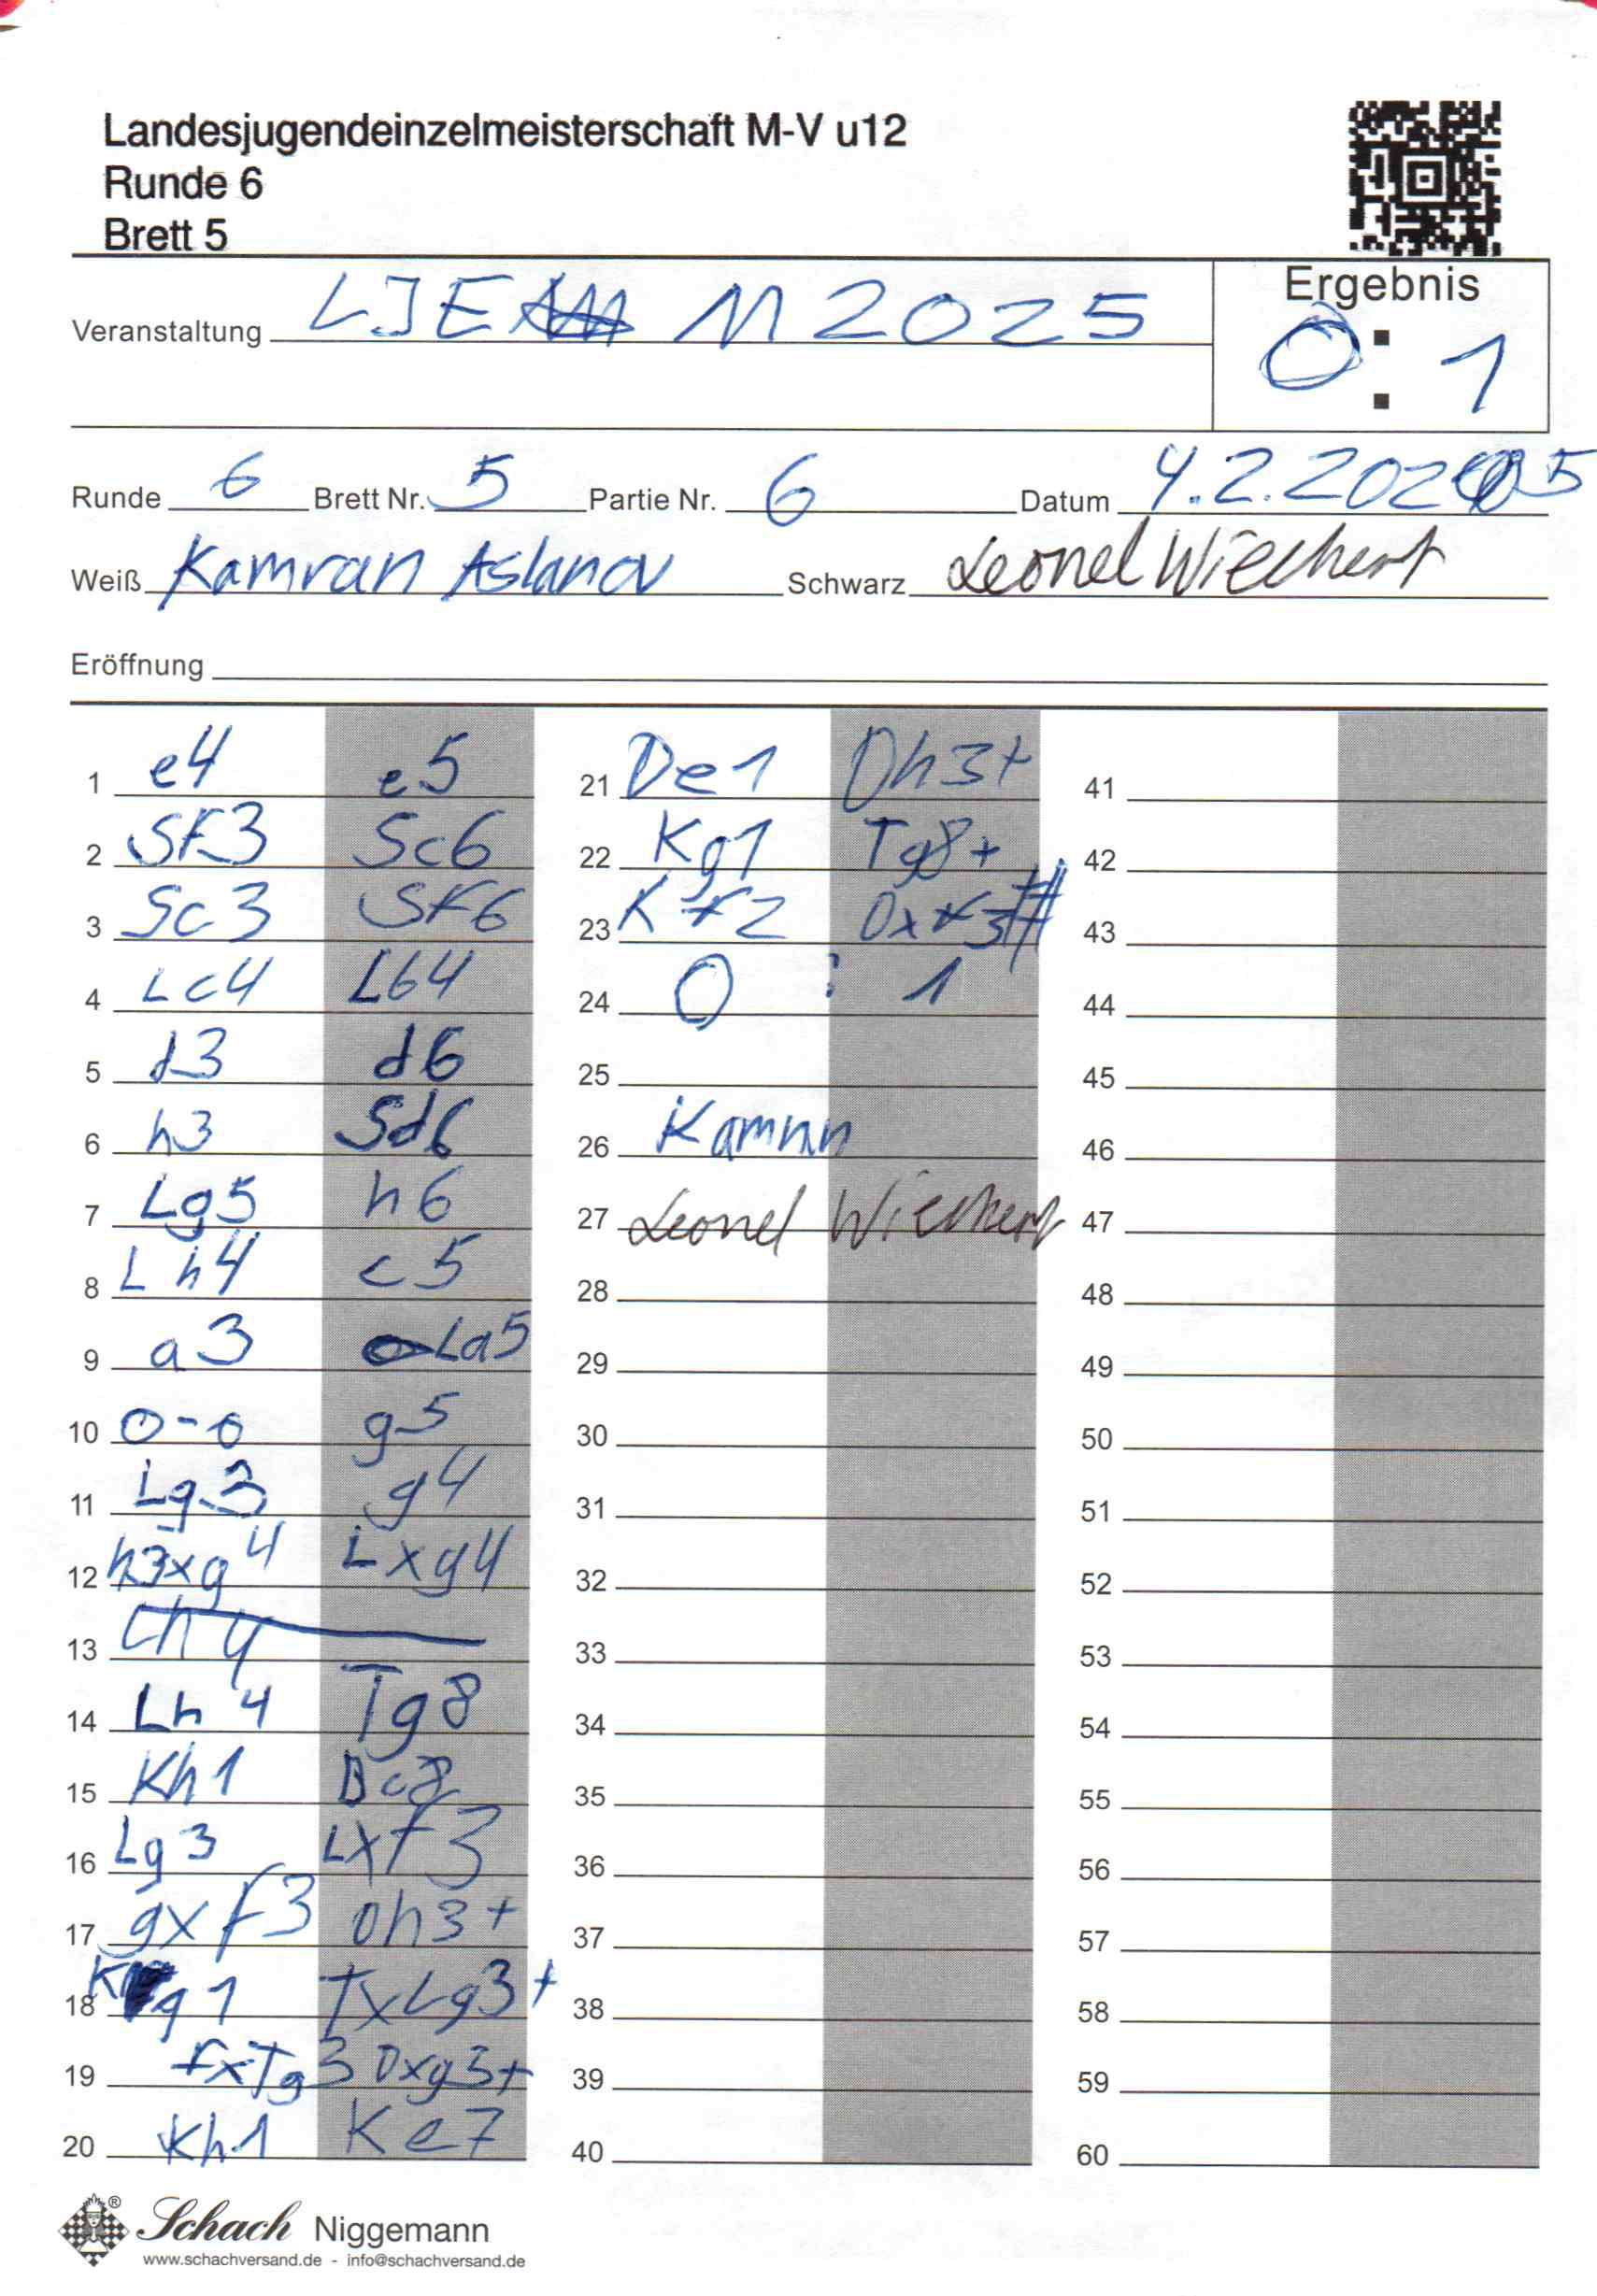 Landesjugendeinzelmeisterschaft M-V u12
Runde 6
Brett 5
Veranstaltung LJE M 2025
Ergebnis
0 : 1
Runde 6 Brett Nr. 5 Partie Nr. 6 Datum 4.2.2025
Weiß Kamran Aslanov Schwarz Leonel Wiechert
Eröffnung
1 e4 e5
2 Sf3 Sc6
3 Sc3 Sf6
4 Lc4 Lb4
5 d3 d6
6 h3 Sd6
7 Lg5 h6
8 Lh4 c5
9 a3 La5
10 0-0 g5
11 Lg3 g4
12 h3xg4 Lxg4
13
14 Lh4 Tg8
15 Kh1 Dc8
16 Lg3 Lxf3
17 gxf3 Dh3+
18 Kg1 TxLg3+
19 fxTg3 Dxg3+
20 Kh1 Ke7
21 De1 Dh3+
22 Kg1 Tg8+
23 Kf2 Dxf3#
24 0 : 1
25
26 Kamrn
27 Leonel Wiechert
28
29
30
31
32
33
34
35
36
37
38
39
40
41
42
43
44
45
46
47
48
49
50
51
52
53
54
55
56
57
58
59
60
Schach Niggemann
www.schachversand.de - info@schachversand.de